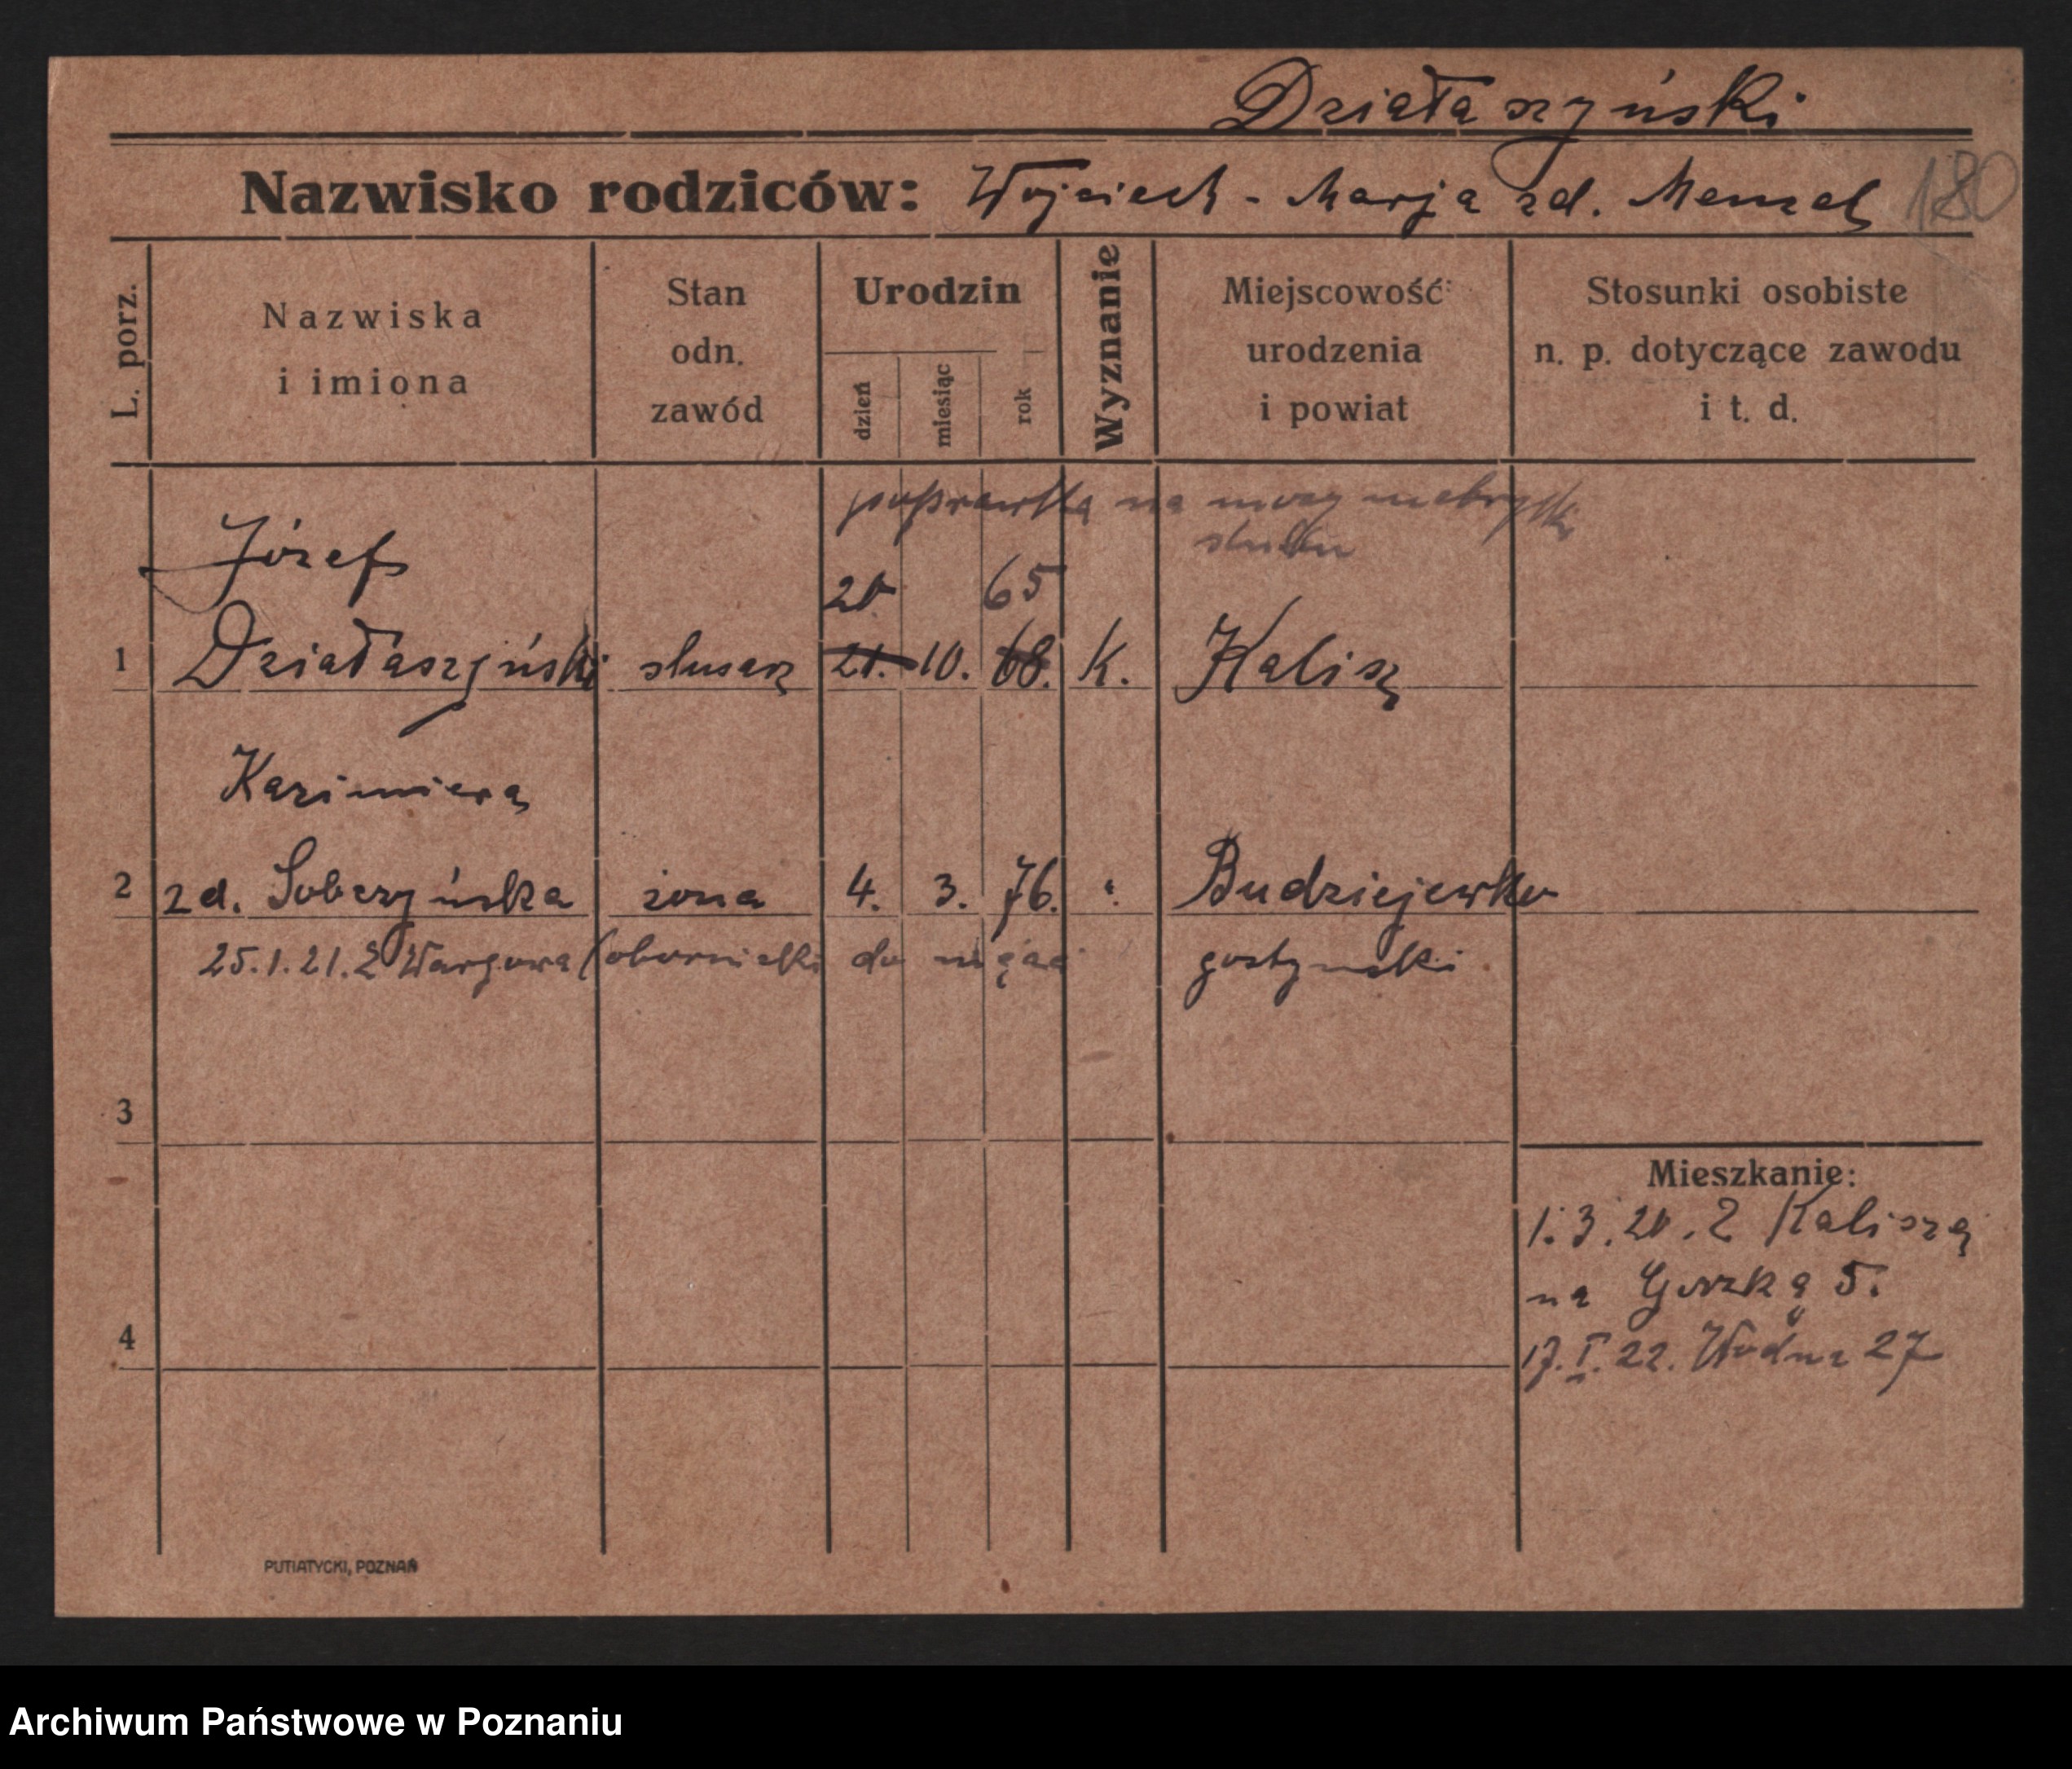 Działaszyński
Nazwisko rodziców: Wojciech - Marja zd. Menzel 180
L. porz. Nazwiska i imiona Stan odn. zawód Urodzin dzień miesiąc rok Wyznanie Miejscowość urodzenia i powiat Stosunki osobiste n. p. dotyczące zawodu i t. d.
poprawka na mocy metryki
ślubu
Józef 20 65
1 Działaszyński ślusarz 21. 10. 68. K. Kalisz
Kazimiera
2 zd. Sobczyńska żona 4. 3. 76. " Budziejewko
25.1.21. Z Wargowa (obornicki do męża gostyński
3
Mieszkanie:
1.3.20. Z Kalisza
na 5.
4 17.I.22. Wodna 27
PUTIATYCKI, POZNAŃ
Archiwum Państwowe w Poznaniu